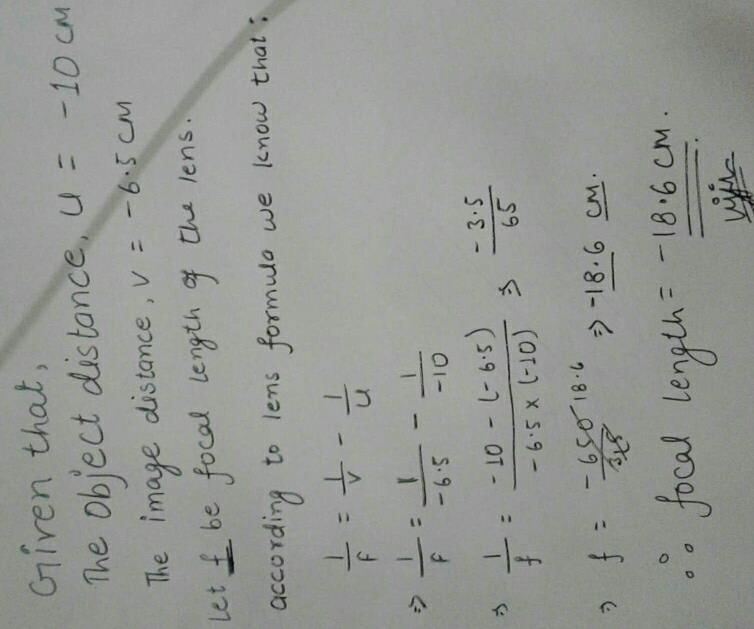 Given that,
The object distance, u = -10 cm
The image distance, v = -6.5 cm
Let f be focal length of the lens.
according to lens formula we know that:
1/f = 1/v - 1/u
⇒ 1/f = 1/-6.5 - 1/-10
⇒ 1/f = -10-(-6.5)/-6.5×(-10) ⇒ -3.5/65
⇒ f = -650/35 18.6 ⇒ -18.6 cm.
∴ focal length = -18.6 cm.